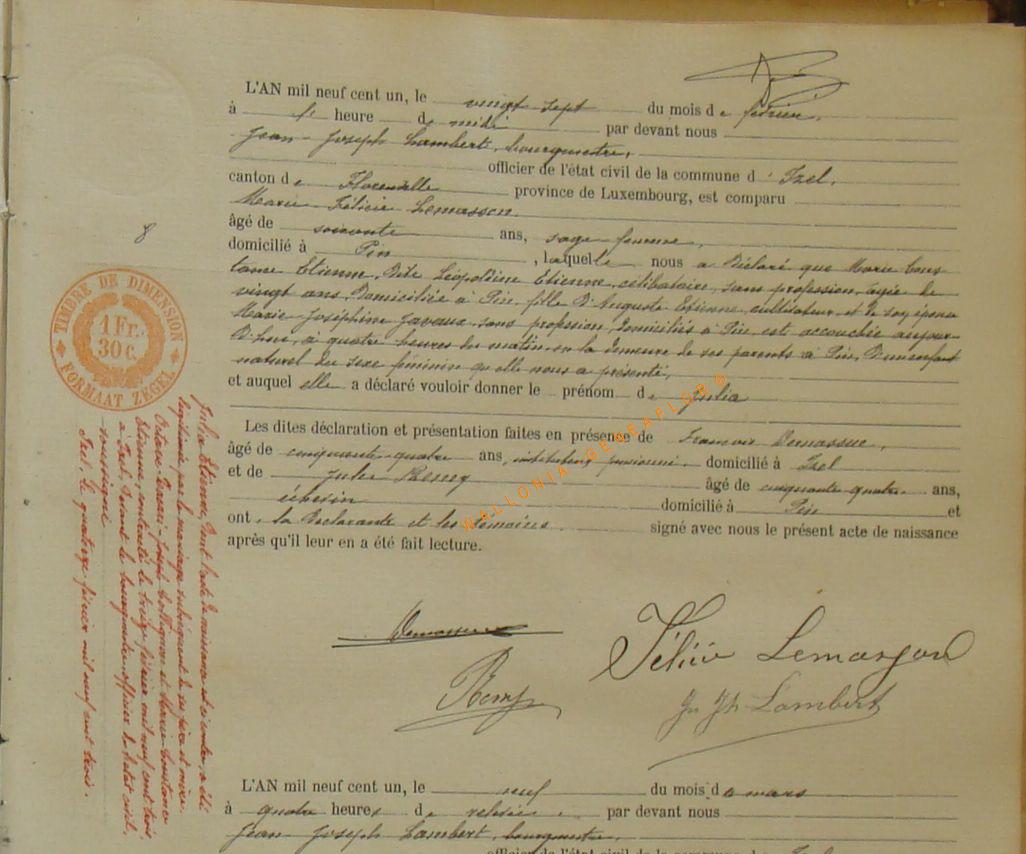 L'AN mil neuf cent un, le vingt sept du mois de février,
à l' heure de midi par devant nous
Jean-Joseph Lambert, bourgmestre,
officier de l'état civil de la commune d'Izel,
canton de Florenville province de Luxembourg, est comparu
Marie Félicie Lemasson
âgé de soixante ans, sage femme,
domicilié à Pin, laquelle nous a déclaré que Marie Cons
tance Etienne, dite Léopoldine Etienne, célibataire, sans profession, âgée de
vingt ans, domiciliée à Pin, fille d'Auguste Etienne, cultivateur, et de son épouse
Marie-Joséphine Javaux, sans profession, domiciliés à Pin est accouchée aujour
d'hui, à quatre heures du matin, en la demeure de ses parents à Pin, d'un enfant
naturel du sexe féminin qu'elle nous a présenté,
et auquel elle a déclaré vouloir donner le prénom de Julia
Les dites déclaration et présentation faites en présence de François Demassue,
âgé de cinquante quatre ans, instituteur pensionné, domicilié à Izel
et de Jules Remy âgé de cinquante quatre ans,
échevin domicilié à Pin et
ont, la déclarante et les témoins signé avec nous le présent acte de naissance
après qu'il leur en a été fait lecture.
Félicie Lemasson
Remy
Jn Jh Lambert
8
TIMBRE DE DIMENSION
1 Fr.
30 c.
FORMAAT ZEGEL
Julia Etienne, dont l'acte de naissance est ci-contre, a été
légitimée par le mariage subséquent de ses père et mère
Joseph et Marie-Constance
Etienne, contracté le treize février mil neuf cent trois
à Izel, devant le bourgmestre officier de l'état civil,
soussigné
Izel, le quatorze février mil neuf cent trois.
WALLONIA-GENEAFLORE
L'AN mil neuf cent un, le neuf du mois de mars
à quatre heures de relevée, par devant nous
Jean Joseph Lambert, bourgmestre,
officier de l'état civil de la commune d' Izel